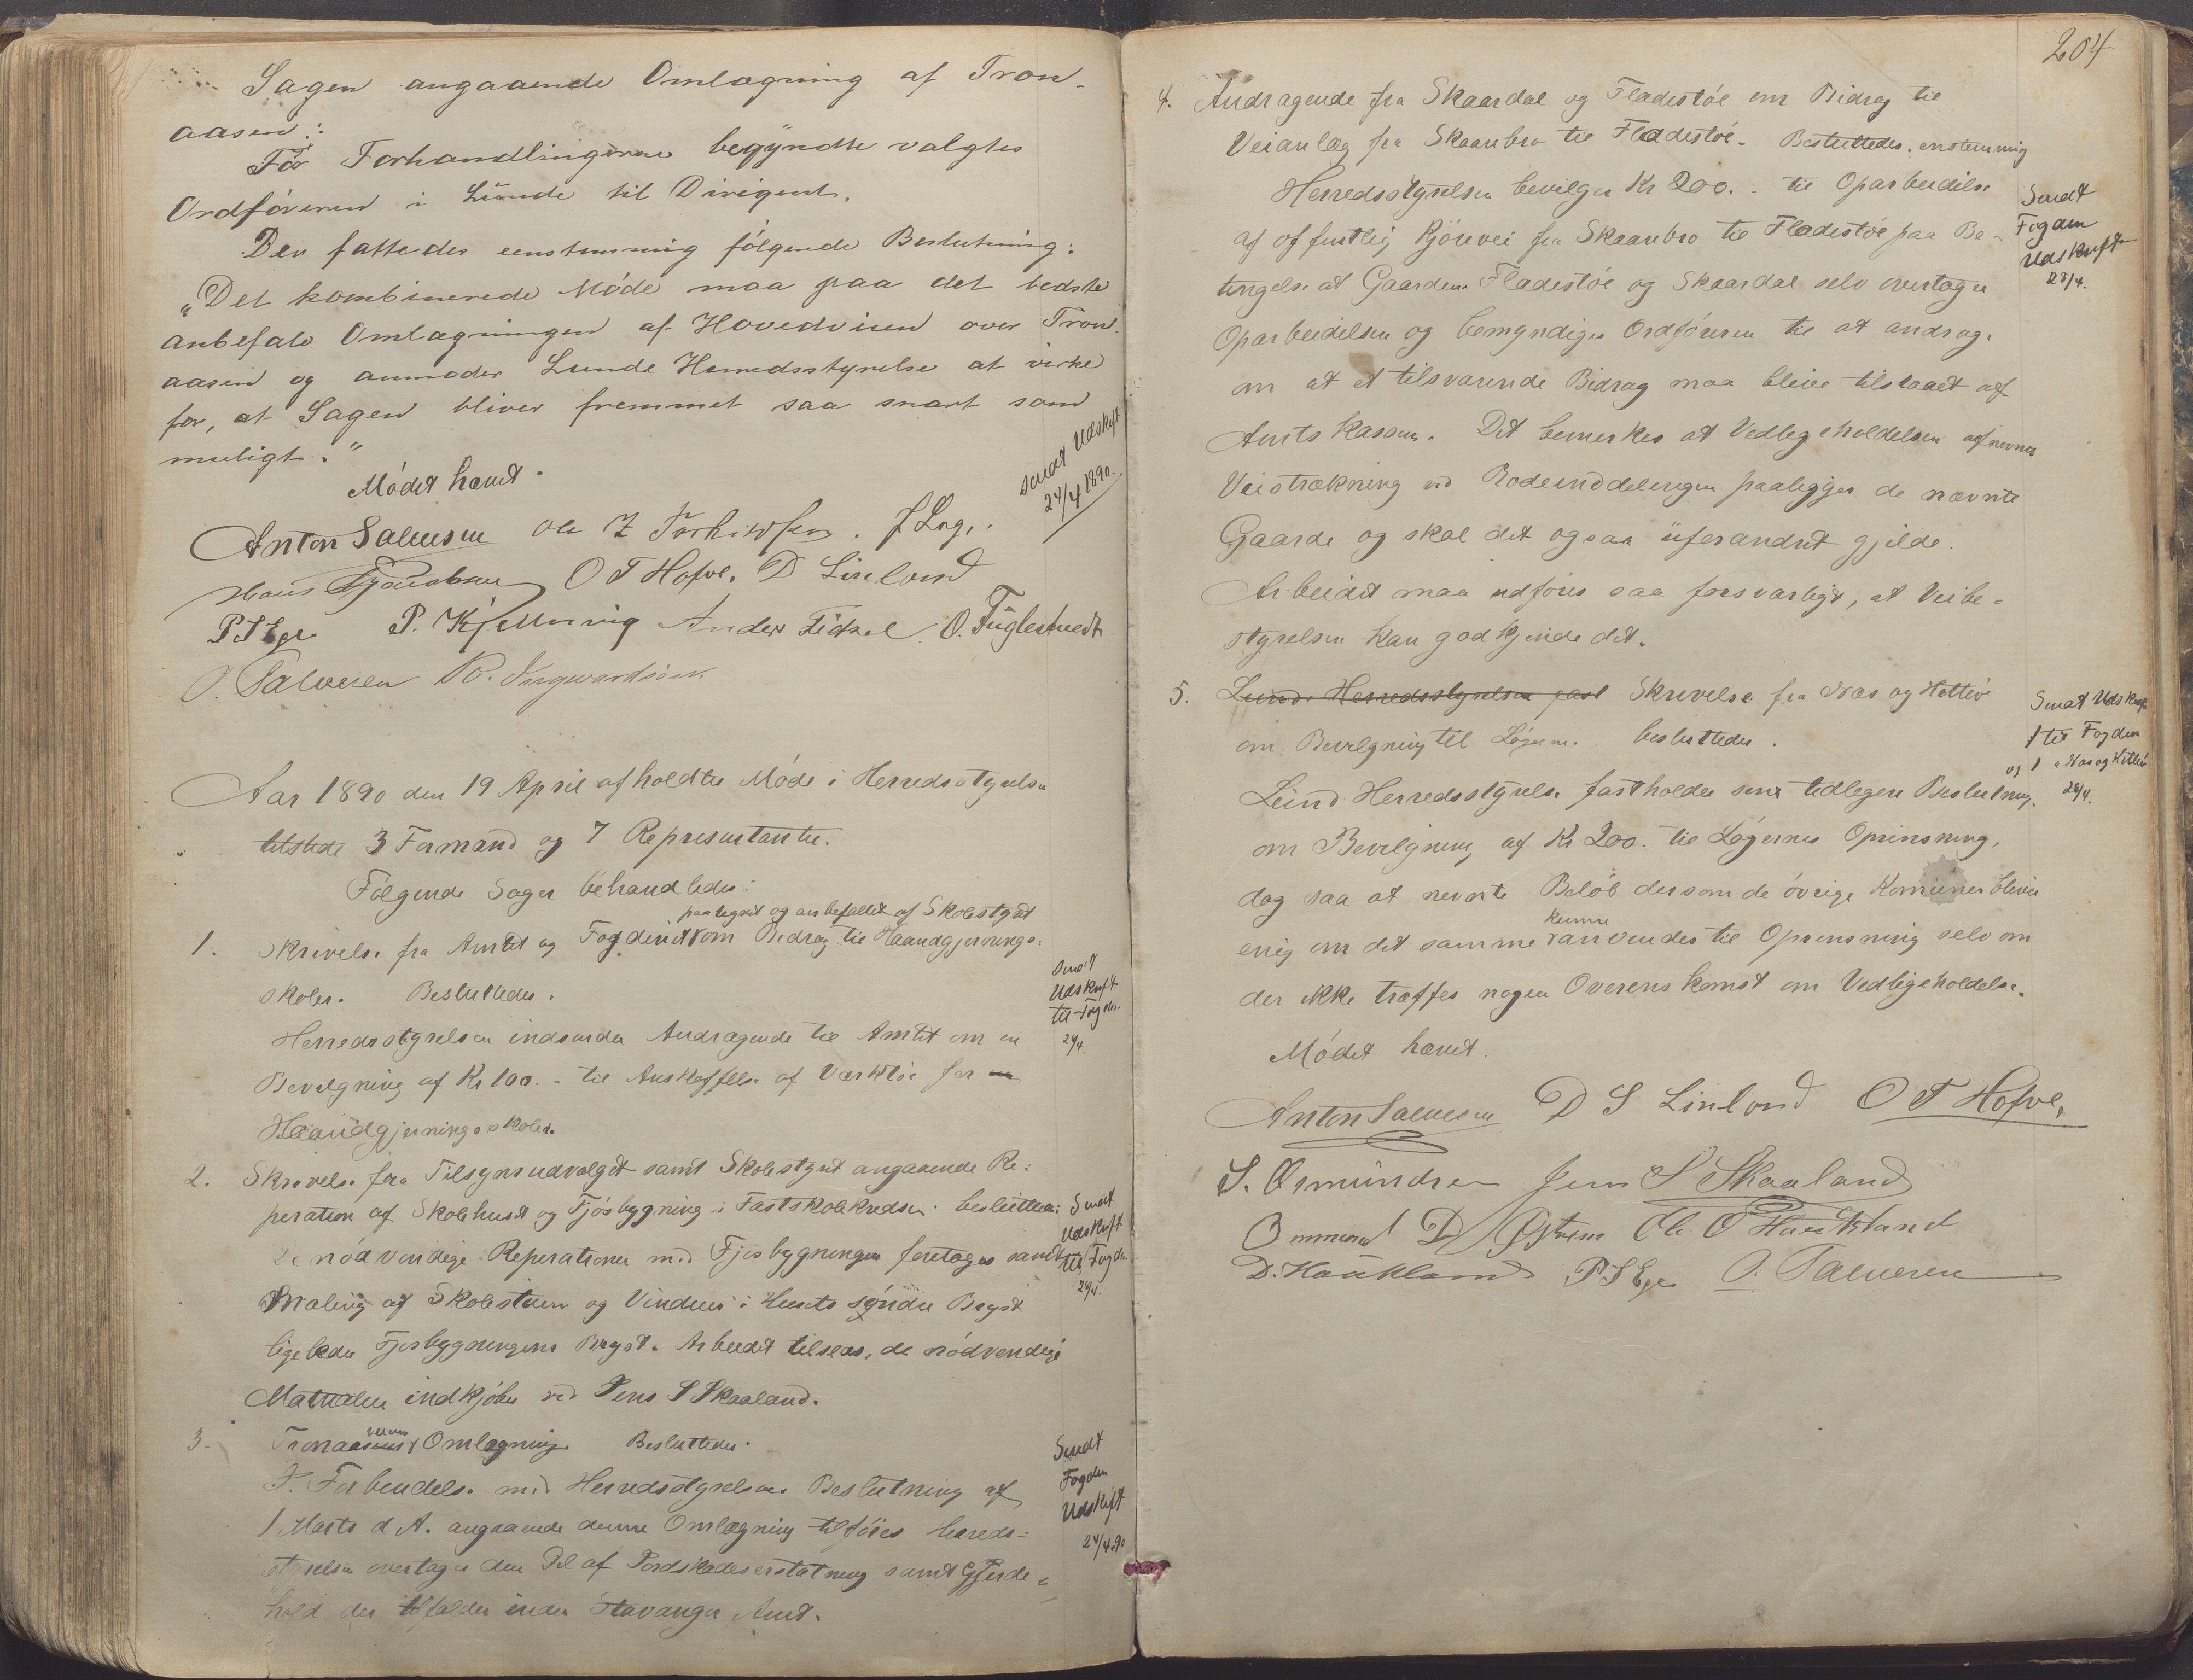 Sagen angaaende Omlægning af Tron-
aasen:
Før Forhandlingerne begyndte valgtes
Ordføreren i Lunde til Dirigent.
Der fattedes eenstemmig følgende Beslutning:
"Det kombinerede Møde maa paa det bedste
anbefale Omlægningen af Hovedveien over Tron-
aasen og anmoder Lunde Herredsstyrelse at virke
for, at Sagen bliver fremmet saa snart som
muligt."
Mødet hævet.
Sendt Udskrift
24/4 1890.
Anton Salvesen Ole T
Hans O T Hofve. D Linland
P S Ege P. Kjellesvig Anders O. Fuglestvedt
O. Salvesen
Aar 1890 den 19 April afholdtes Møde i Herredsstyrelsen
tilstede 3 Formænd og 7 Repræsentanter.
Følgende Sager behandledes:
paategnet og anbefallet af Skolestyret
1. Skrivelse fra Amtet og Fogderiet om Bidrag til Haandgjernings-
skoler. Besluttedes.
Herredsstyrelsen indsender Andragende til Amtet om en
Bevilgning af Kr 100.- til Anskaffelse af Værktøi for
Haandgjerningsskoler.
Sendt
Udskrift
til Fogden
24/4.
2. Skrivelse fra Tilsynsudvalget samt Skolestyret angaaende Re-
peration af Skolehuset og Fjøsbygning i Fastskolekredsen. besluttedes:
De nødvendige Reperationer med Fjøsbygningen foretages samt
Maling af Skolestuen og Vinduer i Husets søndre Bryst
ligeledes Fjøsbygningens Bryst. Arbeidet tilsees, de nødvendige
Matrialier indkjøbes ved Jens S Skaaland.
Sendt
Udskrift
til Fogden
24/4.
3. Tronaasens Omlægning Besluttedes.
I Forbindelse med Herredsstyrelsens Beslutning af
1 Marts d A. angaaende denne Omlægning tilføies Herreds-
styrelsen overtager den Del af Jordskadeserstatning samt Gjerde-
hold der tilfalder inden Stavanger Amt.
Sendt
Fogden
Udskrift
24/4 90
204
4. Andragende fra Skaardal og Fladestøl om Bidrag til
Veianlæg fra Skaanbro til Fladestøl. Besluttedes. enstemmig
Herredsstyrelsen bevilger Kr 200.- til Oparbeidelse
af offentlig Kjørevei fra Skaanbro til Fladestøl paa Be-
tingelse at Gaardene Fladestøl og Skaardal selv overtager
Oparbeidelsen og bemyndiges Ordføreren til at andrage
om at et tilsvarende Bidrag maa blive tilstaaet af
Amtskassen. Det bemerkes at Vedligeholdelsen af nævnte
Veistrækning ved Rodeinddelingen paaligger de nævnte
Gaarde og skal det ogsaa uforandret gjelde.
Arbeidet maa udføres saa forsvarligt, at Veibe-
styrelsen kan godkjende det.
Sendt
Fogden
Udskrift
23/4.
5. Lund Herredsstyrelsen fast Skrivelse fra Næs og Hetteø
om Bevilgning til Løgerne. besluttedes.
Lund Herredsstyrelse fastholder sin tidligere Beslutning
om Bevilgning af Kr 200. til Løgernes Oprinsning,
dog saa at nevnte Beløb dersom de øvrige Komuner bliver
enig om det samme kunne anvendes til Oprensning selv om
der ikke træffes nogen Overenskomst om Vedligeholdelse.
Mødet hævet.
Sendt Udskrift
1 til Fogden
og 1 Næs og Hetteø
24/4.
Anton Salvesen D S Linland O T Hofve.
S. Osmundsen Jens S Skaaland
Ommund D Østrem Ole O Haukland
D. Haukland P S Ege O. Salvesen